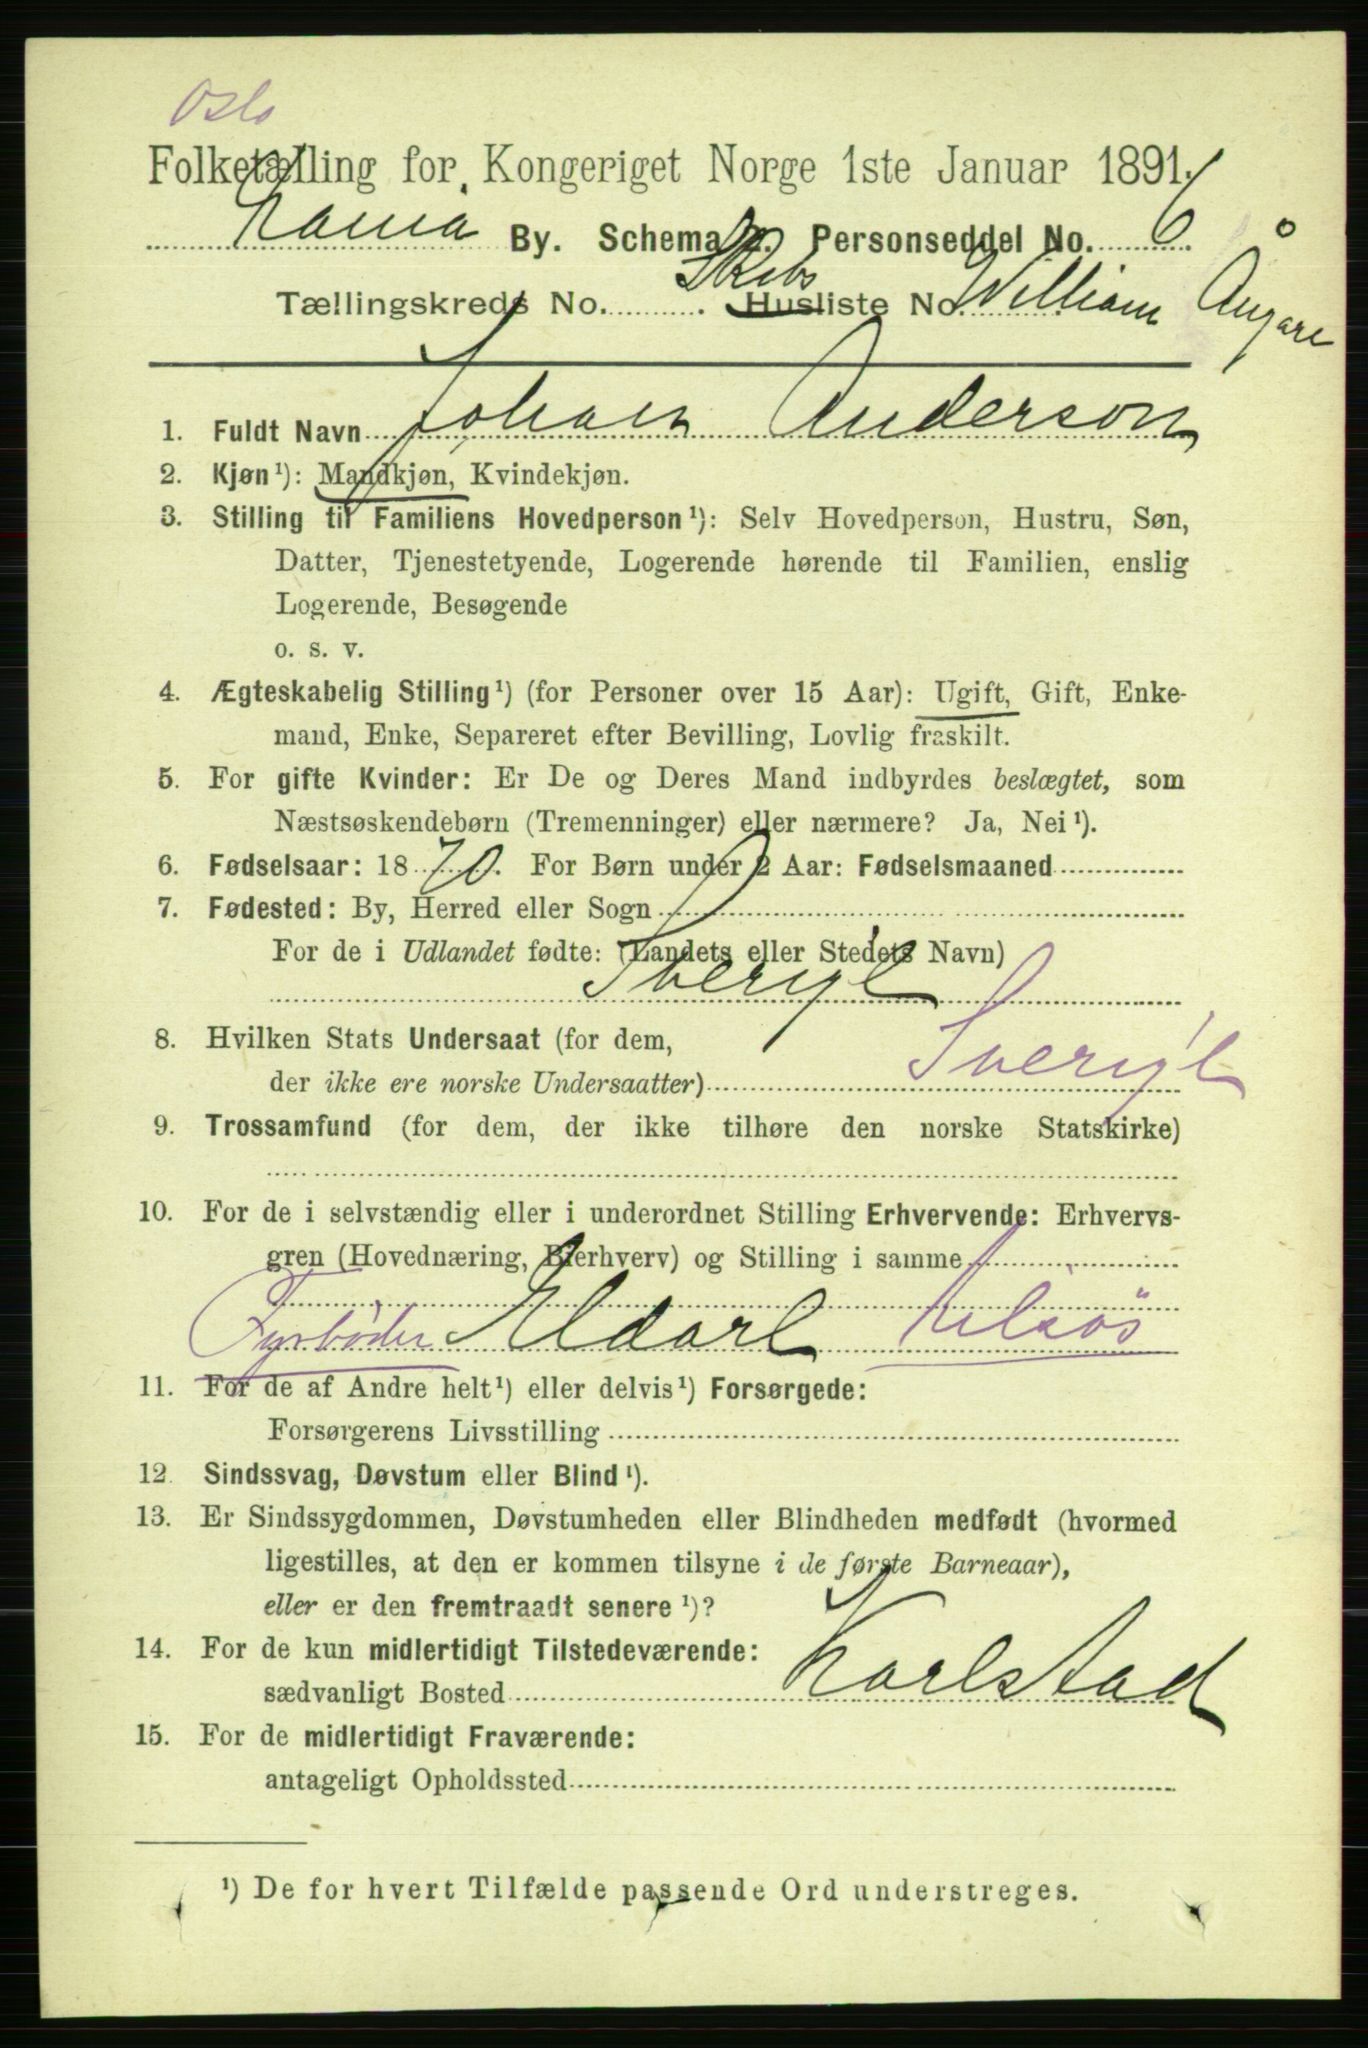 Oslo
Folketælling for Kongeriget Norge 1ste Januar 1891.
Kania By. Schema 2. Personseddel No. 6
Tællingskreds No. . Skibs Husliste No. William Ångare
1. Fuldt Navn Johan Anderson
2. Kjøn¹): Mandkjøn, Kvindekjøn.
3. Stilling til Familiens Hovedperson¹): Selv Hovedperson, Hustru, Søn,
Datter, Tjenestetyende, Logerende hørende til Familien, enslig
Logerende, Besøgende
o. s. v.
4. Ægteskabelig Stilling¹) (for Personer over 15 Aar): Ugift, Gift, Enke-
mand, Enke, Separeret efter Bevilling, Lovlig fraskilt.
5. For gifte Kvinder: Er De og Deres Mand indbyrdes beslægtet, som
Næstsøskendebørn (Tremenninger) eller nærmere? Ja, Nei¹).
6. Fødselsaar: 1870. For Børn under 2 Aar: Fødselsmaaned
7. Fødested: By, Herred eller Sogn
For de i Udlandet fødte: (Landets eller Stedets Navn)
Sverige
8. Hvilken Stats Undersaat (for dem,
der ikke ere norske Undersaatter) Sverige
9. Trossamfund (for dem, der ikke tilhøre den norske Statskirke)
10. For de i selvstændig eller i underordnet Stilling Erhvervende: Erhvervs-
gren (Hovednæring, Bierhverv) og Stilling i samme
Fyrbøder Eldare tilsös
11. For de af Andre helt¹) eller delvis¹) Forsørgede:
Forsørgerens Livsstilling
12. Sindssvag, Døvstum eller Blind¹).
13. Er Sindssygdommen, Døvstumheden eller Blindheden medfødt (hvormed
ligestilles, at den er kommen tilsyne i de første Barneaar),
eller er den fremtraadt senere¹)?
14. For de kun midlertidigt Tilstedeværende:
sædvanligt Bosted Karlstad
15. For de midlertidigt Fraværende:
antageligt Opholdssted
¹) De for hvert Tilfælde passende Ord understreges.